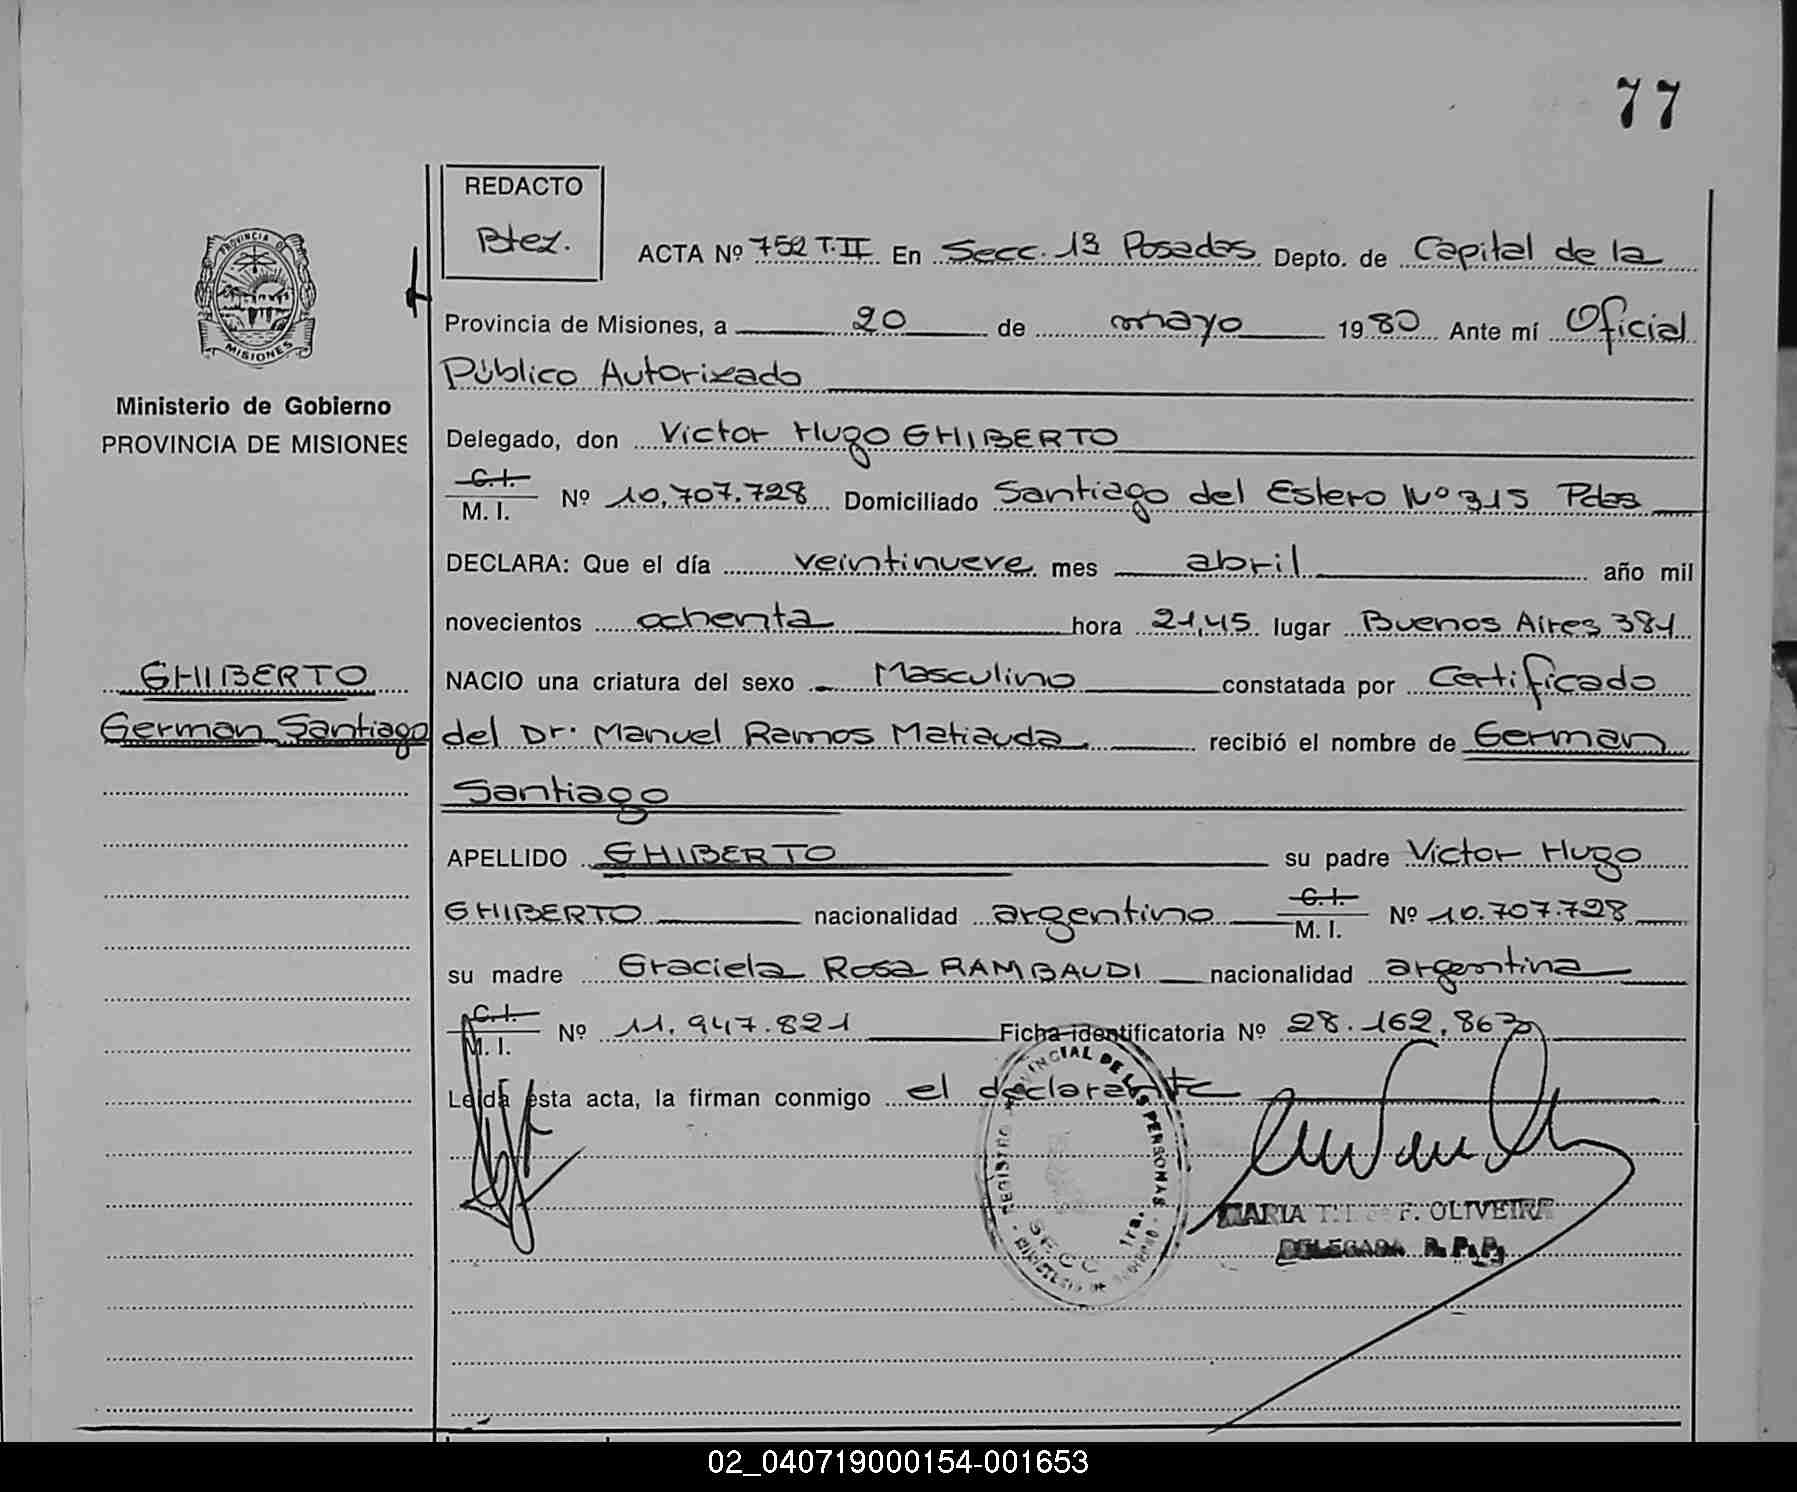 77
REDACTO
Btez.
PROVINCIA DE
MISIONES
Ministerio de Gobierno
PROVINCIA DE MISIONES
ACTA Nº 752 T.II En Secc. 1ª Posadas Depto. de Capital de la
Provincia de Misiones, a 20 de mayo 1980 Ante mí Oficial
Público Autorizado
Delegado, don Victor Hugo GHIBERTO
C.I.
M. I. Nº 10.707.728 Domiciliado Santiago del Estero Nº 315 Pdas
DECLARA: Que el día veintinueve mes abril año mil
novecientos ochenta hora 21,45 lugar Buenos Aires 381
GHIBERTO
German Santiago
NACIO una criatura del sexo Masculino constatada por Certificado
del Dr. Manuel Ramos Matiauda recibió el nombre de German
Santiago
APELLIDO GHIBERTO su padre Victor Hugo
GHIBERTO nacionalidad argentino C.I. M. I. Nº 10.707.728
su madre Graciela Rosa RAMBAUDI nacionalidad argentina
C.I.
M. I. Nº 11.947.821 Ficha identificatoria Nº 28.162.863
Leída ésta acta, la firman conmigo el declarante
REGISTRO PROVINCIAL DE LAS PERSONAS
SECC. 1ra.
MINISTERIO DE GOBIERNO
MARIA F. OLIVEIRA
DELEGADA R. P. P.
02_040719000154-001653